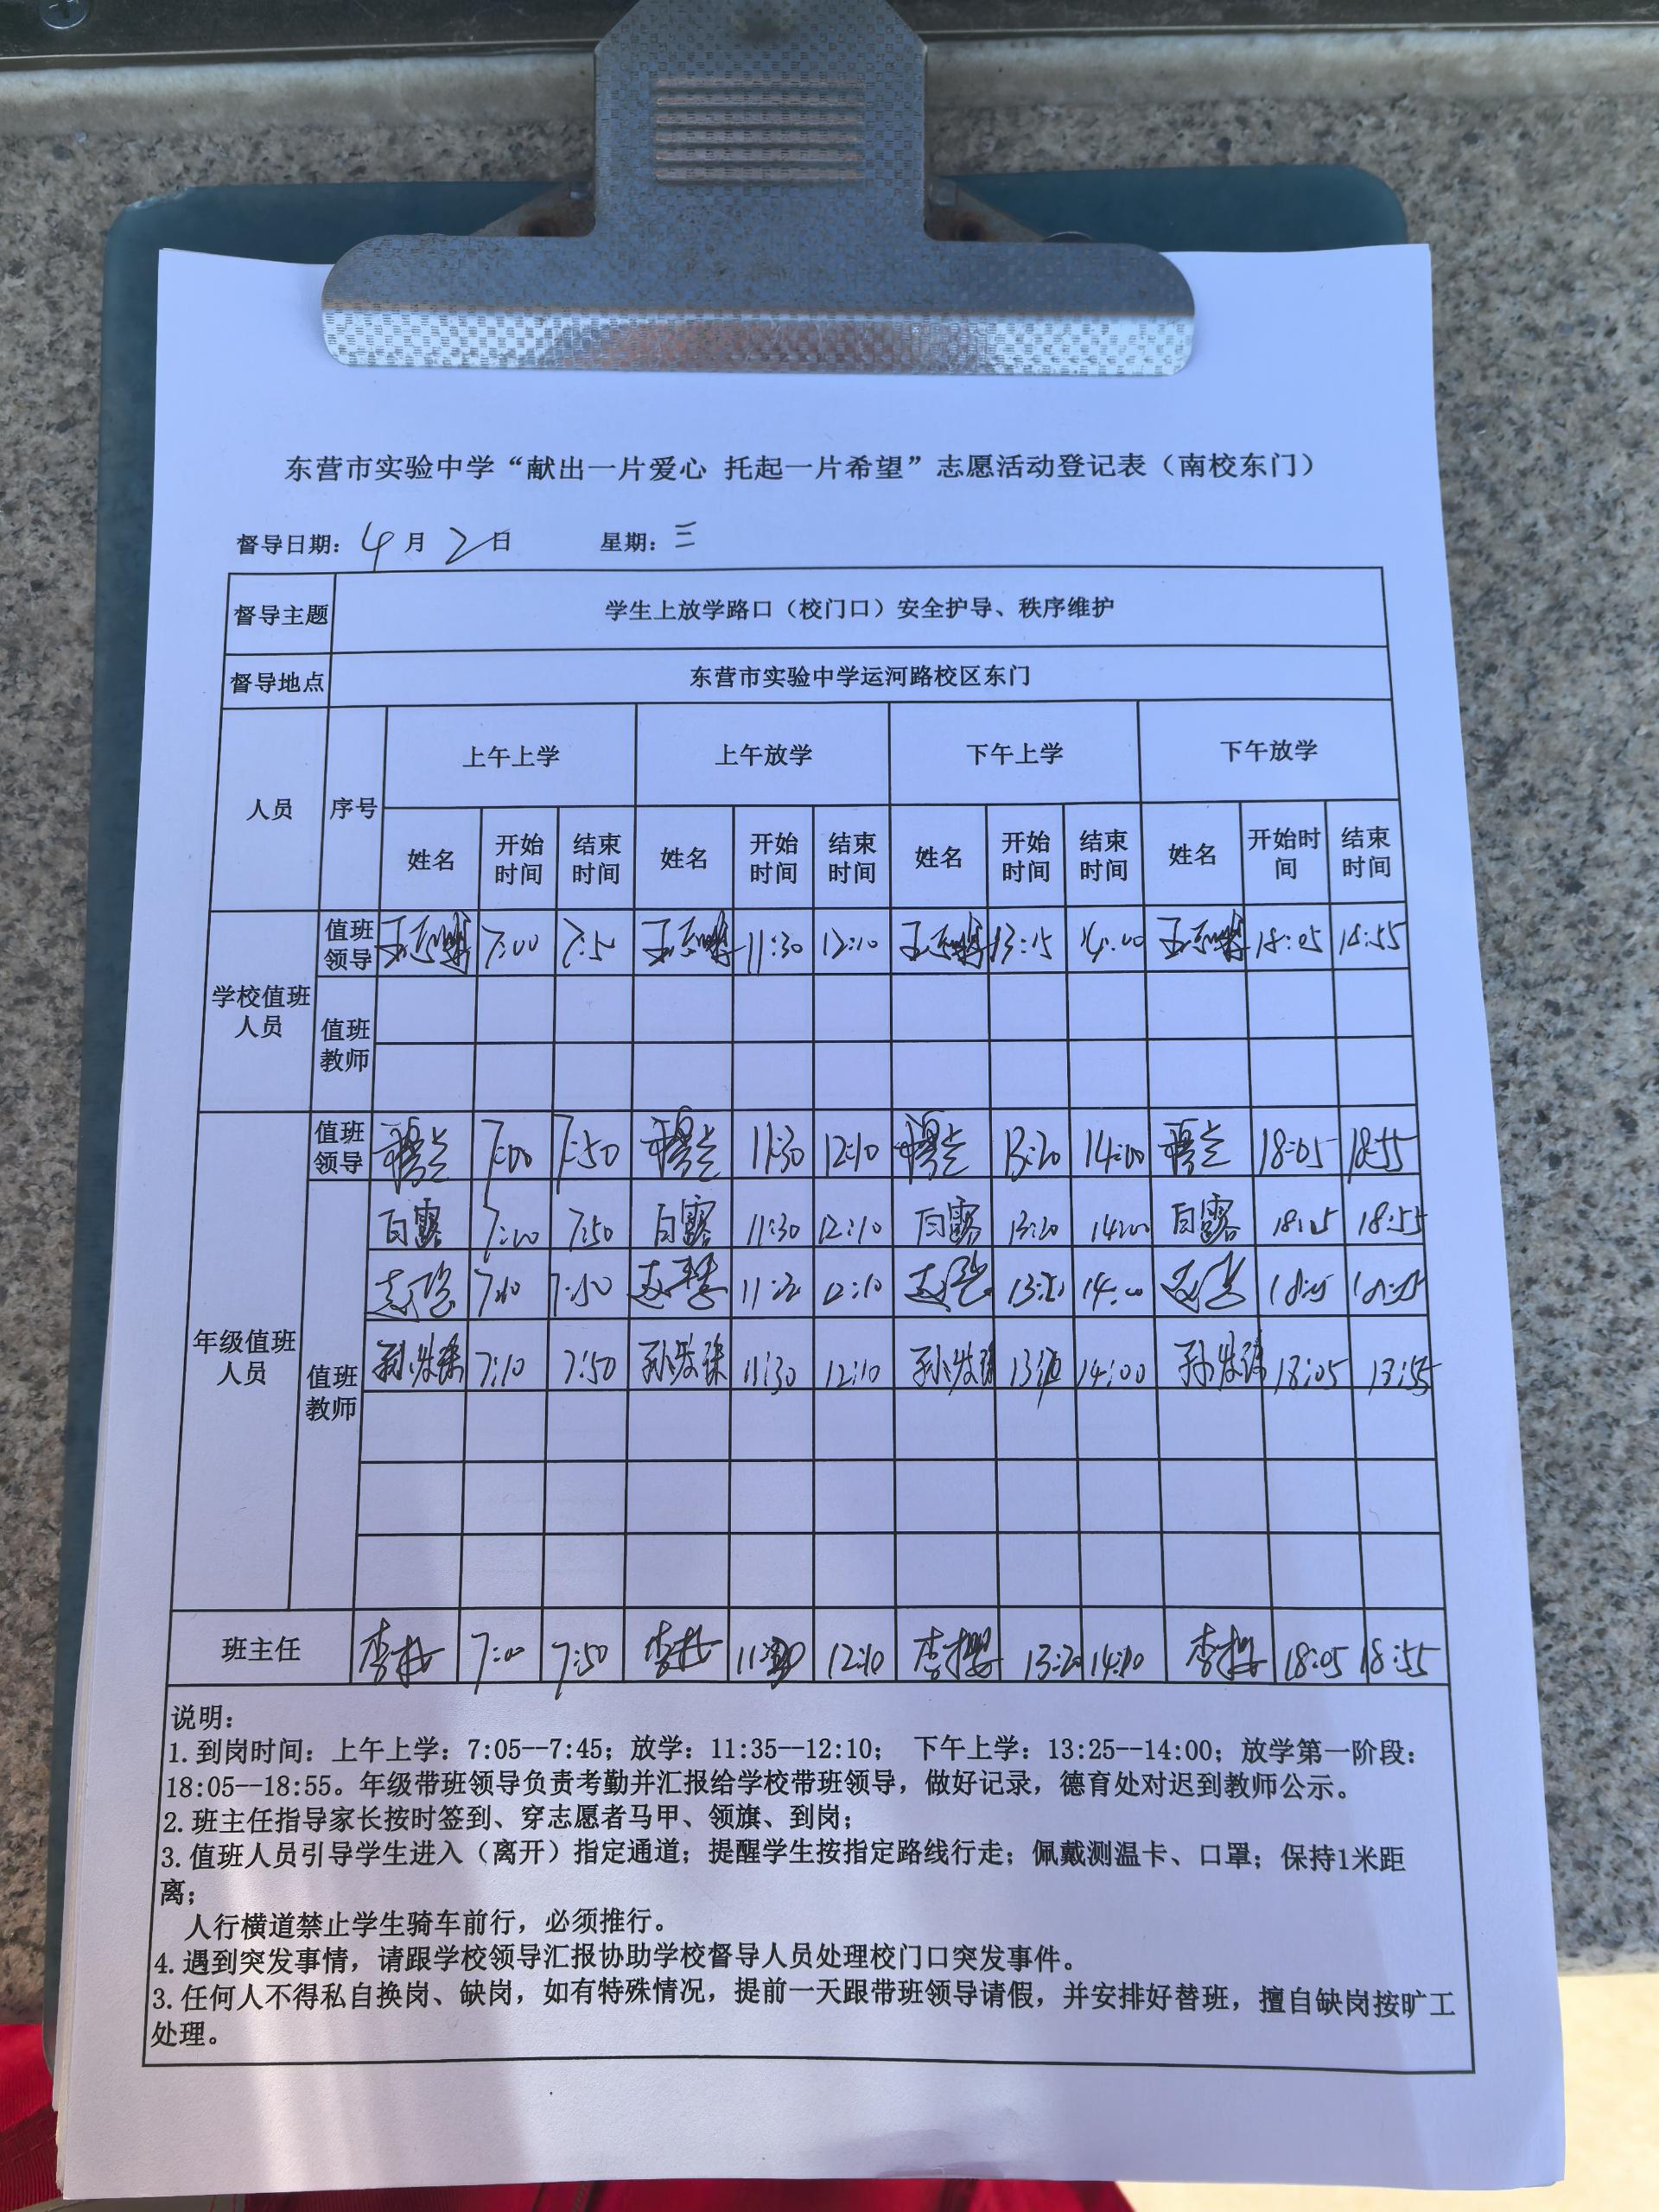 东营市实验中学“献出一片爱心 托起一片希望”志愿活动登记表（南校东门）
督导日期: 4月2日 星期:三
督导主题 学生上放学路口（校门口）安全护导、秩序维护
督导地点 东营市实验中学运河路校区东门
人员 序号 上午上学 上午放学 下午上学 下午放学
姓名 开始时间 结束时间 姓名 开始时间 结束时间 姓名 开始时间 结束时间 姓名 开始时间 结束时间
学校值班人员 值班领导 7:00 7:50 11:30 12:10 13:15 14:00 18:05 18:55
值班教师
年级值班人员 值班领导 7:00 7:50 11:30 12:10 13:20 14:00 18:05 18:55
白露 7:00 7:50 白露 11:30 12:10 白露 13:20 14:00 白露 18:05 18:55
值班教师 7:10 7:50 12:10 14:00
7:10 7:50 11:30 12:10 14:00 18:05
班主任 7:00 7:50 12:10 李樱 13:20 李樱 18:05 18:55
说明:
1.到岗时间: 上午上学: 7:05--7:45; 放学: 11:35--12:10; 下午上学: 13:25--14:00; 放学第一阶段:
18:05--18:55。年级带班领导负责考勤并汇报给学校带班领导，做好记录，德育处对迟到教师公示。
2.班主任指导家长按时签到、穿志愿者马甲、领旗、到岗;
3.值班人员引导学生进入（离开）指定通道; 提醒学生按指定路线行走; 佩戴测温卡、口罩; 保持1米距
离;
人行横道禁止学生骑车前行，必须推行。
4.遇到突发事情，请跟学校领导汇报协助学校督导人员处理校门口突发事件。
3.任何人不得私自换岗、缺岗，如有特殊情况，提前一天跟带班领导请假，并安排好替班，擅自缺岗按旷工
处理。